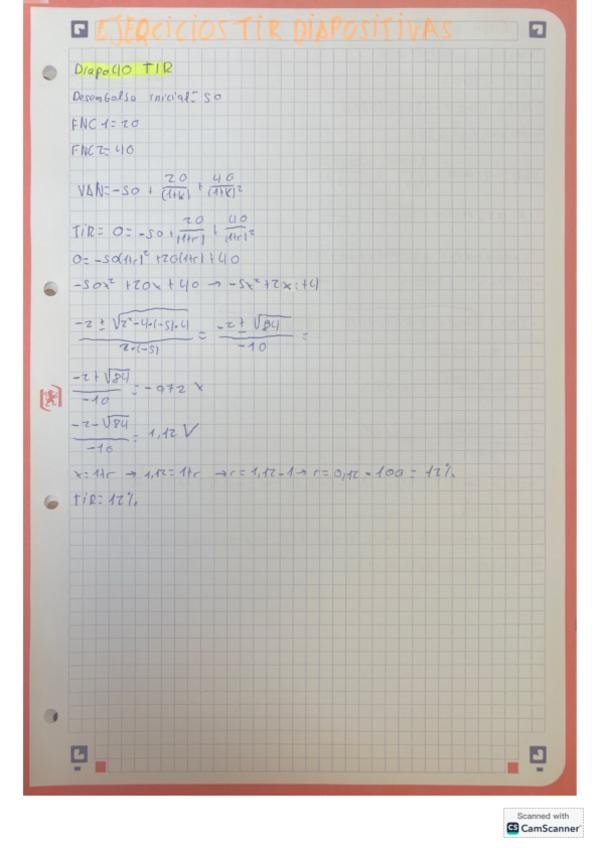 EJERCICIOS TIR DIAPOSITIVAS
Diapo 40 TIR
Desembolso inicial = 50
FNC 1 = 20
FNC 2 = 40
VAN = -50 + 20/(1+k) + 40/(1+k)²
TIR = 0 = -50 + 20/(1+r) + 40/(1+r)²
0 = -50(1+r)² + 20(1+r) + 40
-50x² + 20x + 40 → -5x² + 2x + 4
-2 ± √2²-4·(-5)·4 / 2·(-5) = -2 ± √84 / -10 =
-2 + √84 / -10 = -0,72 x
-2 - √84 / -10 = 1,12 V
x = 1+r → 1,12 = 1+r → r = 1,12 - 1 → r = 0,12 · 100 = 12%
TIR = 12%
Scanned with
CS CamScanner